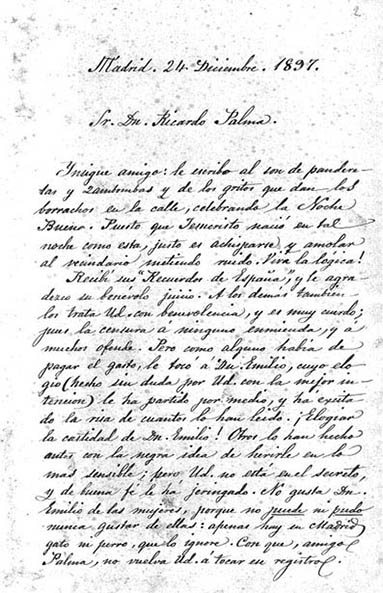 2
Madrid. 24 Diciembre. 1897.
Sr. Dn. Ricardo Palma.
Insigne amigo: le escribo al son de pandere-
tas y zambombas y de los gritos que dan los
borrachos en la calle, celebrando la Noche
Buena. Puesto que Jesucristo nació en tal
noche como esta, justo es achisparse y amolar
al vecindario metiendo ruido. ¡Viva la lógica!
Recibí sus "Recuerdos de España", y le agra-
dezco su benévolo juicio. A los demás también
los trata Ud. con benevolencia, y es muy cuerdo;
pues la censura a ninguno enmienda, y á
muchos ofende. Pero como alguno había de
pagar el gasto, le tocó a Dn. Emilio, cuyo elo-
gio (hecho sin duda por Ud. con la mejor in-
tención) le ha partido por medio, y ha excita-
do la risa de cuantos lo han leido. ¡Elogiar
la castidad de Dn. Emilio! Otros lo han hecho
antes con la negra idea de herirle en lo
mas sensible; pero Ud. no está en el secreto,
y de buena fé le ha jeringado. No gusta Dn.
Emilio de las mujeres, porque no puede ni pudo
nunca gustar de ellas: apenas hay en Madrid
gato ni perro, que lo ignore. Con que, amigo
Palma, no vuelva Ud. a tocar en registro.